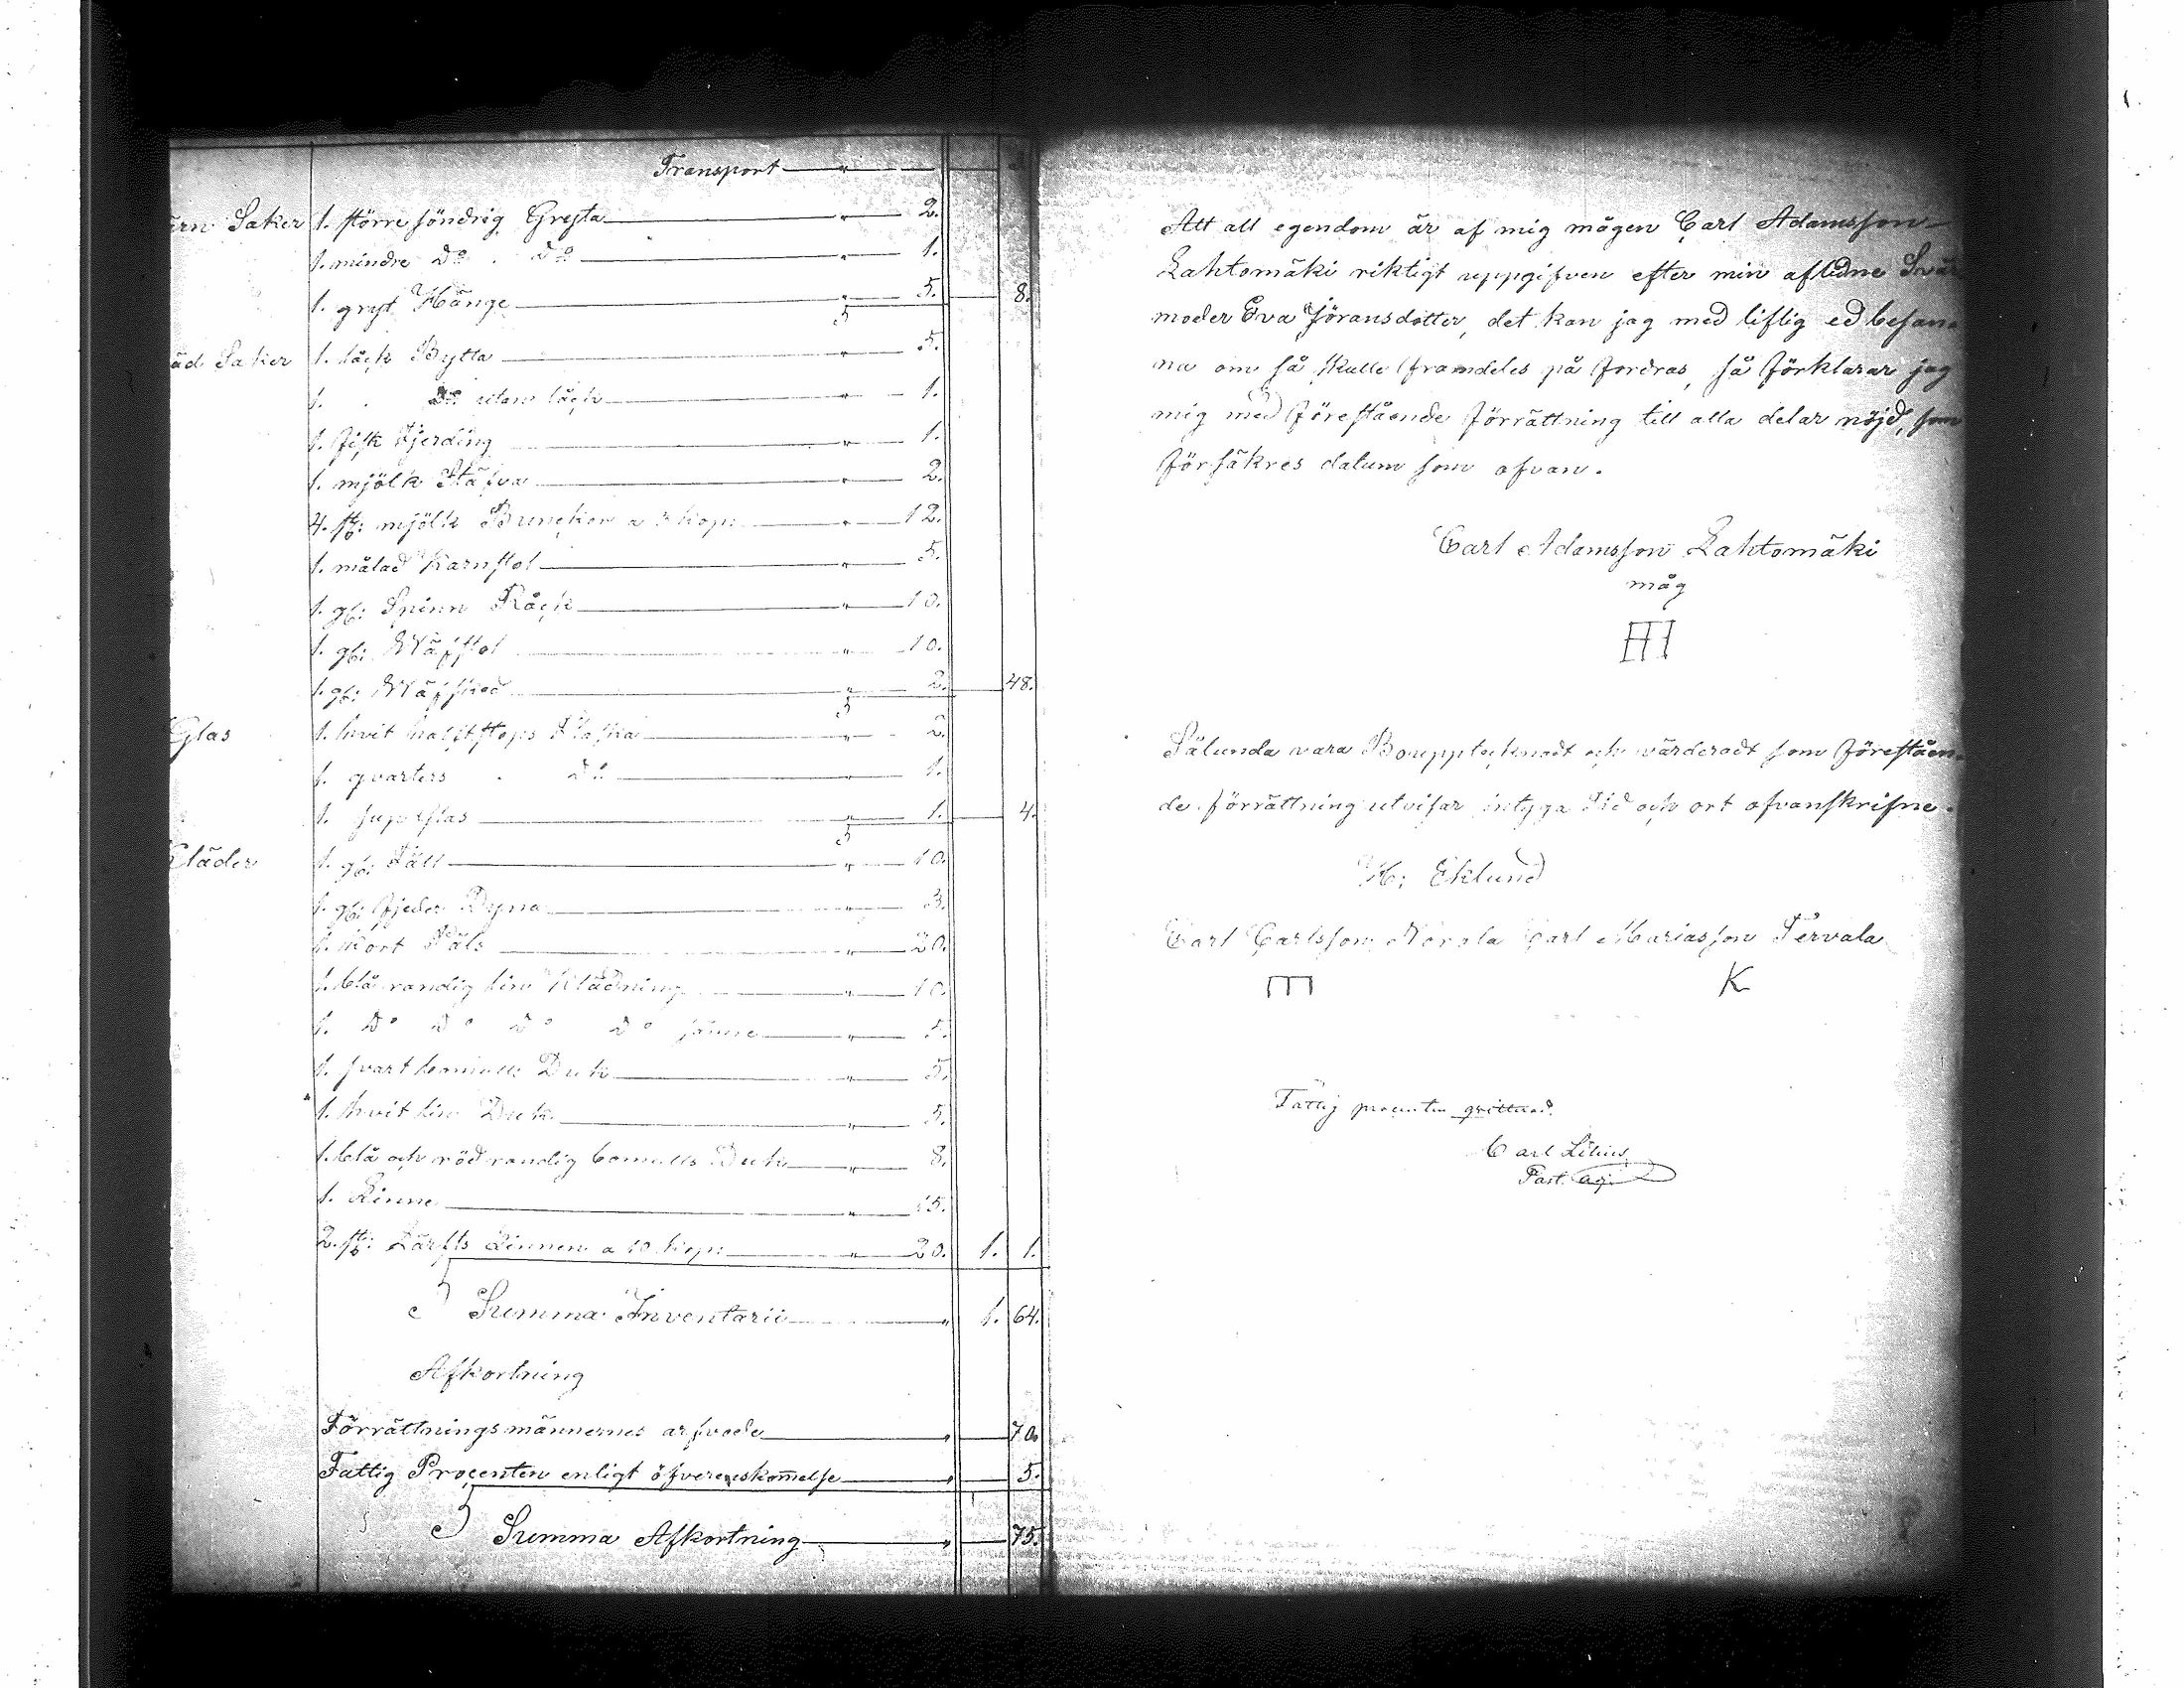 Transport " —
Jern Saker 1. större söndrig Gryta " 2.
1. mindre Do. Do " 1.
1. gryt Hänge " 5. 8.
Träd Saker 1. läck Bytta " 5.
1. Do utan läck " 1.
1. fisk Fjerding " 1.
1. mjölk Stäfva " 2.
4. st: mjölk Bunckor a 3 kop: " 12.
1. målad Karnstol " 5.
1. gl: Spinn Råck " 10.
1. gl: Wäfstol " 10.
1. gl: Wäfsked " 2. 48.
Glas 1. hvit halfstops Flaska " 2.
1. qvarters Do " 1.
1. supglas " 1. 4.
Kläder 1. gl: Fäll " 10.
1. gl: fjeder Dyna " 3.
1. kort Päls " 20.
1. blå randig lin Klädning " 10.
1. Do Do Do Do sämre " 5.
1. svart bomulls Duk " 5.
1. hvit lin Duk " 5.
1. blå och röd randig bomulls Duk " 8.
1. Linne " 15.
2. st: Lärfts Linnen a 10 kop: " 20. 1. 1.
Summa Inventarii " 1. 64.
Afkortning
Förrättningsmännernes arfvode " 70.
Fattig Procenten enligt öfverenskommelse " 5.
Summa Afkortning " 75.
Att all egendom är af mig mågen Carl Adamsson
Lahtomäki riktigt uppgifven efter min aflidne Svär
moder Eva Jöransdotter, det kan jag med liflig ed besan-
na om så skulle framdeles på fordras, så förklarar jag
mig med förestående förrättning till alla delar nöjd, som
försäkres datum som ofvan.
Carl Adamsson Lahtomäki
måg
Sålunda vara Bouppteknadt och värderadt som föreståen-
de förrättning utvisar intyga Tid och ort ofvanskrifne.
H: Eklund
Carl Carlsson Norala Carl Mariasson Tervala
K
Fattig procenten qvitterad.
Carl Lilius
Past. adj.